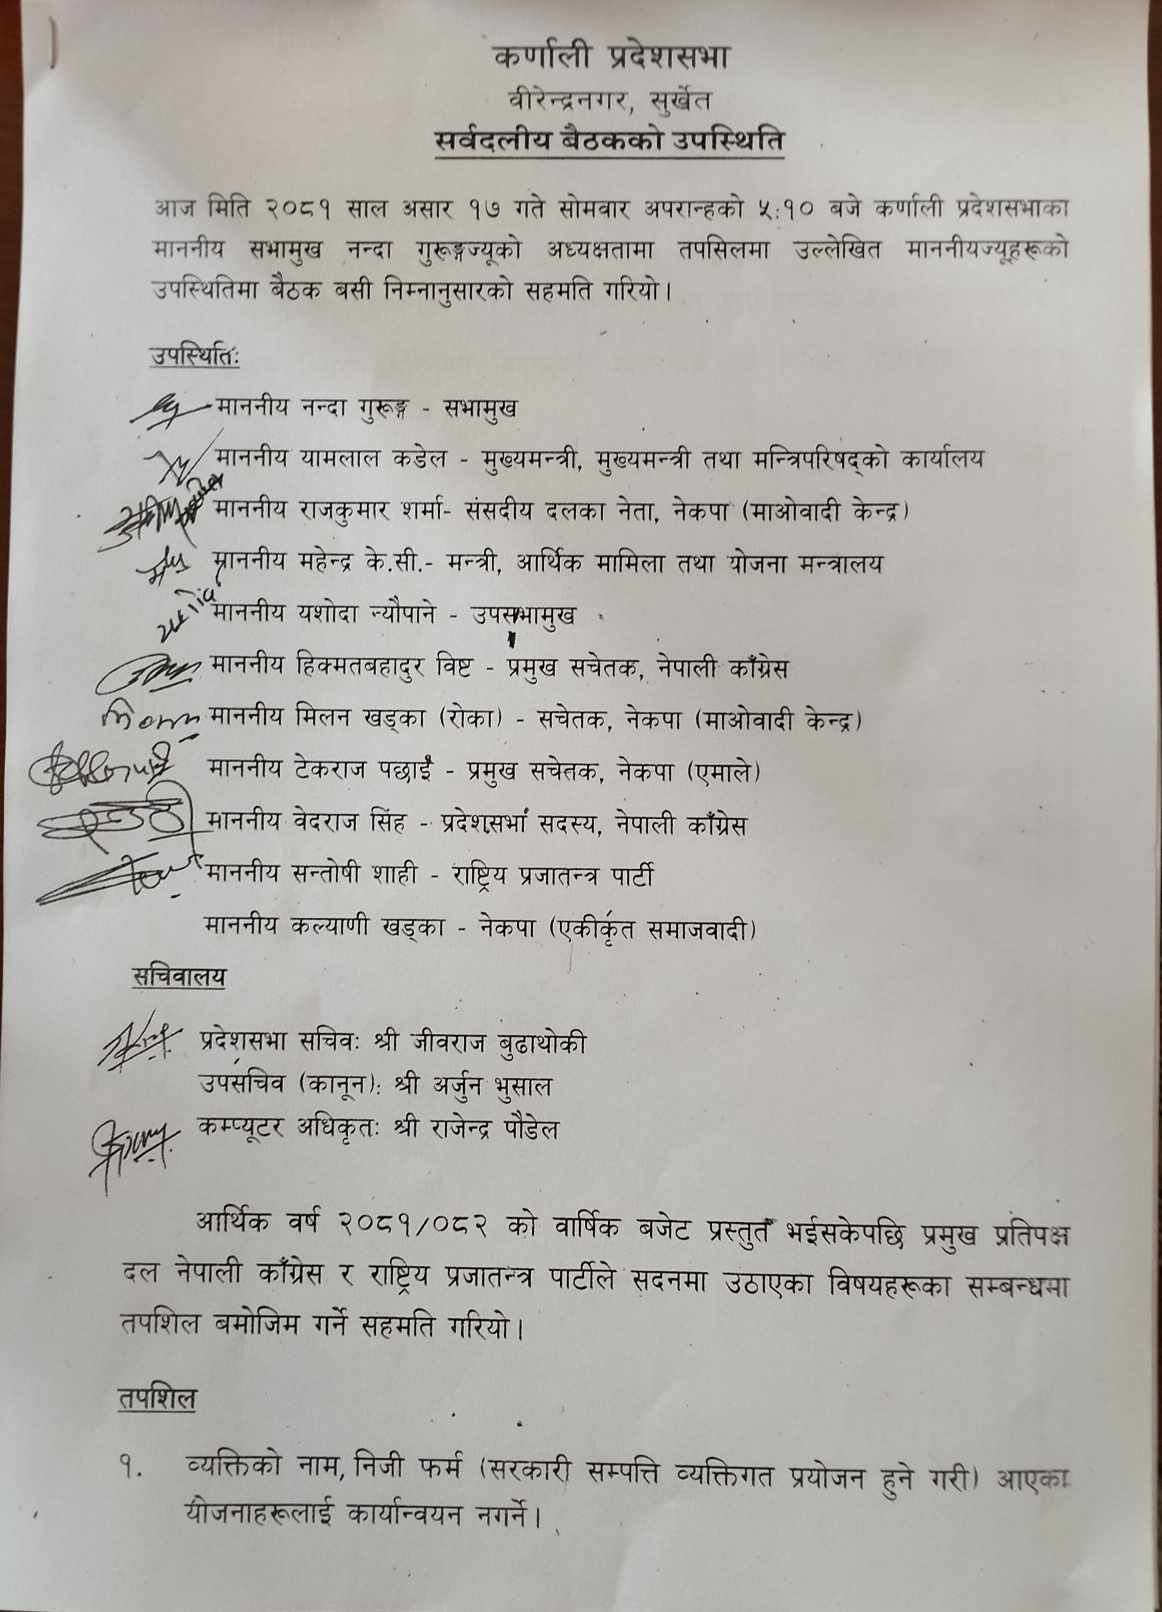 कर्णाली प्रदेशसभा
वीरेन्द्रनगर, सुर्खेत
सर्वदलीय बैठकको उपस्थिति
आज मिति २०८१ साल असार १७ गते सोमवार अपरान्हको ५:१० बजे कर्णाली प्रदेशसभाका
माननीय सभामुख नन्दा गुरूङ्गज्यूको अध्यक्षतामा तपसिलमा उल्लेखित माननीयज्यूहरूको
उपस्थितिमा बैठक बसी निम्नानुसारको सहमति गरियो।
उपस्थितिः
माननीय नन्दा गुरूङ्ग - सभामुख
माननीय यामलाल कडेल - मुख्यमन्त्री, मुख्यमन्त्री तथा मन्त्रिपरिषद्को कार्यालय
माननीय राजकुमार शर्मा- संसदीय दलका नेता, नेकपा (माओवादी केन्द्र)
माननीय महेन्द्र के.सी.- मन्त्री, आर्थिक मामिला तथा योजना मन्त्रालय
माननीय यशोदा न्यौपाने - उपसभामुख
माननीय हिक्मतबहादुर विष्ट - प्रमुख सचेतक, नेपाली काँग्रेस
माननीय मिलन खड्का (रोका) - सचेतक, नेकपा (माओवादी केन्द्र)
माननीय टेकराज पछाईं - प्रमुख सचेतक, नेकपा (एमाले)
माननीय वेदराज सिंह - प्रदेशसभा सदस्य, नेपाली काँग्रेस
माननीय सन्तोषी शाही - राष्ट्रिय प्रजातन्त्र पार्टी
माननीय कल्याणी खड्का - नेकपा (एकीकृत समाजवादी)
सचिवालय
प्रदेशसभा सचिवः श्री जीवराज बुढाथोकी
उपसचिव (कानून): श्री अर्जुन भुसाल
कम्प्यूटर अधिकृतः श्री राजेन्द्र पौडेल
आर्थिक वर्ष २०८१/०८२ को वार्षिक बजेट प्रस्तुत भईसकेपछि प्रमुख प्रतिपक्ष
दल नेपाली काँग्रेस र राष्ट्रिय प्रजातन्त्र पार्टीले सदनमा उठाएका विषयहरूका सम्बन्धमा
तपशिल बमोजिम गर्ने सहमति गरियो।
तपशिल
१. व्यक्तिको नाम, निजी फर्म (सरकारी सम्पत्ति व्यक्तिगत प्रयोजन हुने गरी) आएका
योजनाहरूलाई कार्यान्वयन नगर्ने।